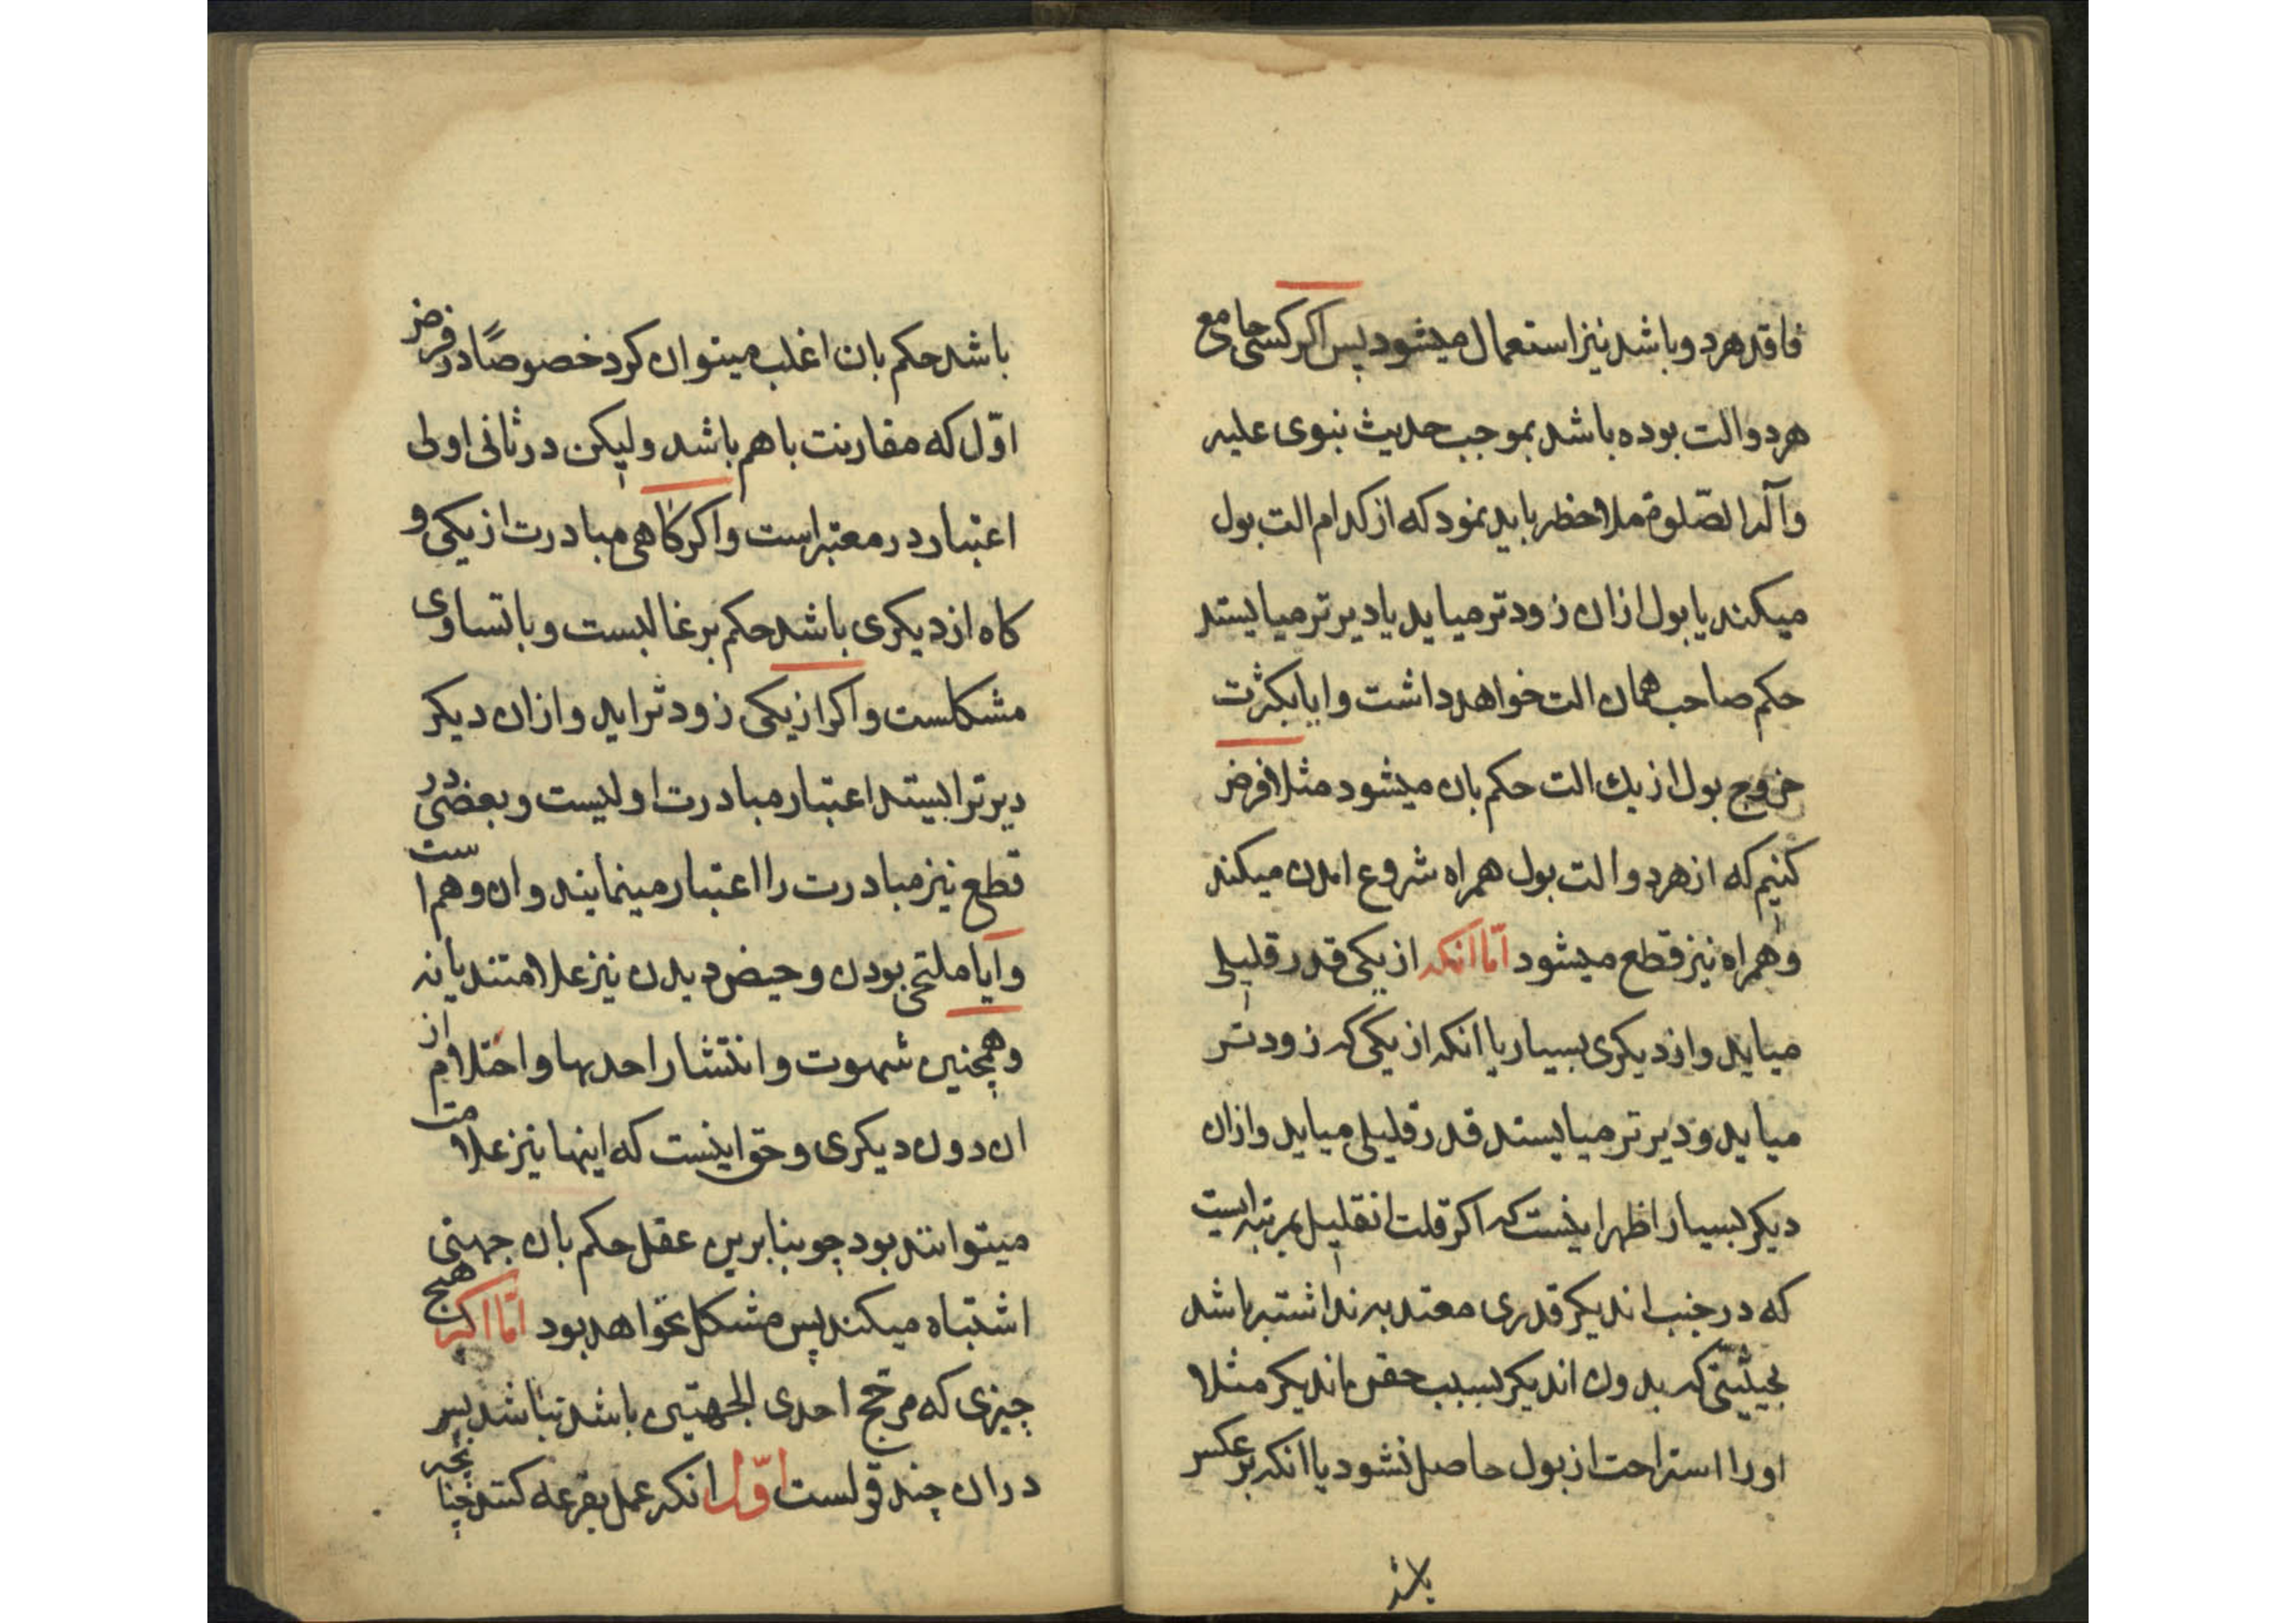 فاقد هردو باشد نیز استعمال میشود پس اکر کسی جامع
هردو الت بوده باشد بموجب حدیث نبوی علیه
وآله الصّلوة ملاحظه باید نمود که از کدام الت بول
میکند یا بول ازان زودتر میاید یا دیرتر میایستد
حکم صاحب همان الت خواهد داشت وایا بکثرت
خروج بول از یك الت حکم بان میشود مثلا فرض
کنیم که از هردو الت بول همراه شروع امدن میکند
وهمراه نیز قطع میشود امّا انکه از یکی قدر قلیلی
میاید واز دیکری بسیار یا انکه از یکی که زودتر
میاید ودیرتر میایستد قدر قلیلی میاید وازان
دیکر بسیار اظهر اینست که اکر قلت انقلیل بمرتبه ایست
که در جنب اندیکر قدری معتد به نداشته باشد
بحیثیتی که بدون اندیکر بسبب حقن اندیکر مثلا
اورا استراحت از بول حاصل نشود یا انکه برعکس
باشد
باشد حکم بان اغلب میتوان کرد خصوصًا در فرض
اوّل که مقارنت باهم باشد ولیکن در ثانی اولی
اعتبار در معتبر است واکر کاهی مبادرت از یکی و
کاه از دیکری باشد حکم بر غالبست وباتساوی
مشکلست واکر از یکی زودتر اید وازان دیکر
دیرتر ایستد اعتبار مبادرت اولیست وبعضی در
قطع نیز مبادرت را اعتبار مینمایند وان وهم است
وآیا ملتحی بودن وحیض دیدن نیز علامتند یا نه
وهمچنین شهوت وانتشار احدیها واحتلام از
ان دون دیکری وحق اینست که اینها نیز علامت
میتوانند بود چو بنابرین عقل حکم بان جهتی
اشتباه میکند پس مشکل نخواهد بود امّا اکر هیچ
چیزی که مرجّح احدی الجهتین باشد نباشد پس
دران چند قولست اوّل انکه عمل بقرعه کنند چنانچه